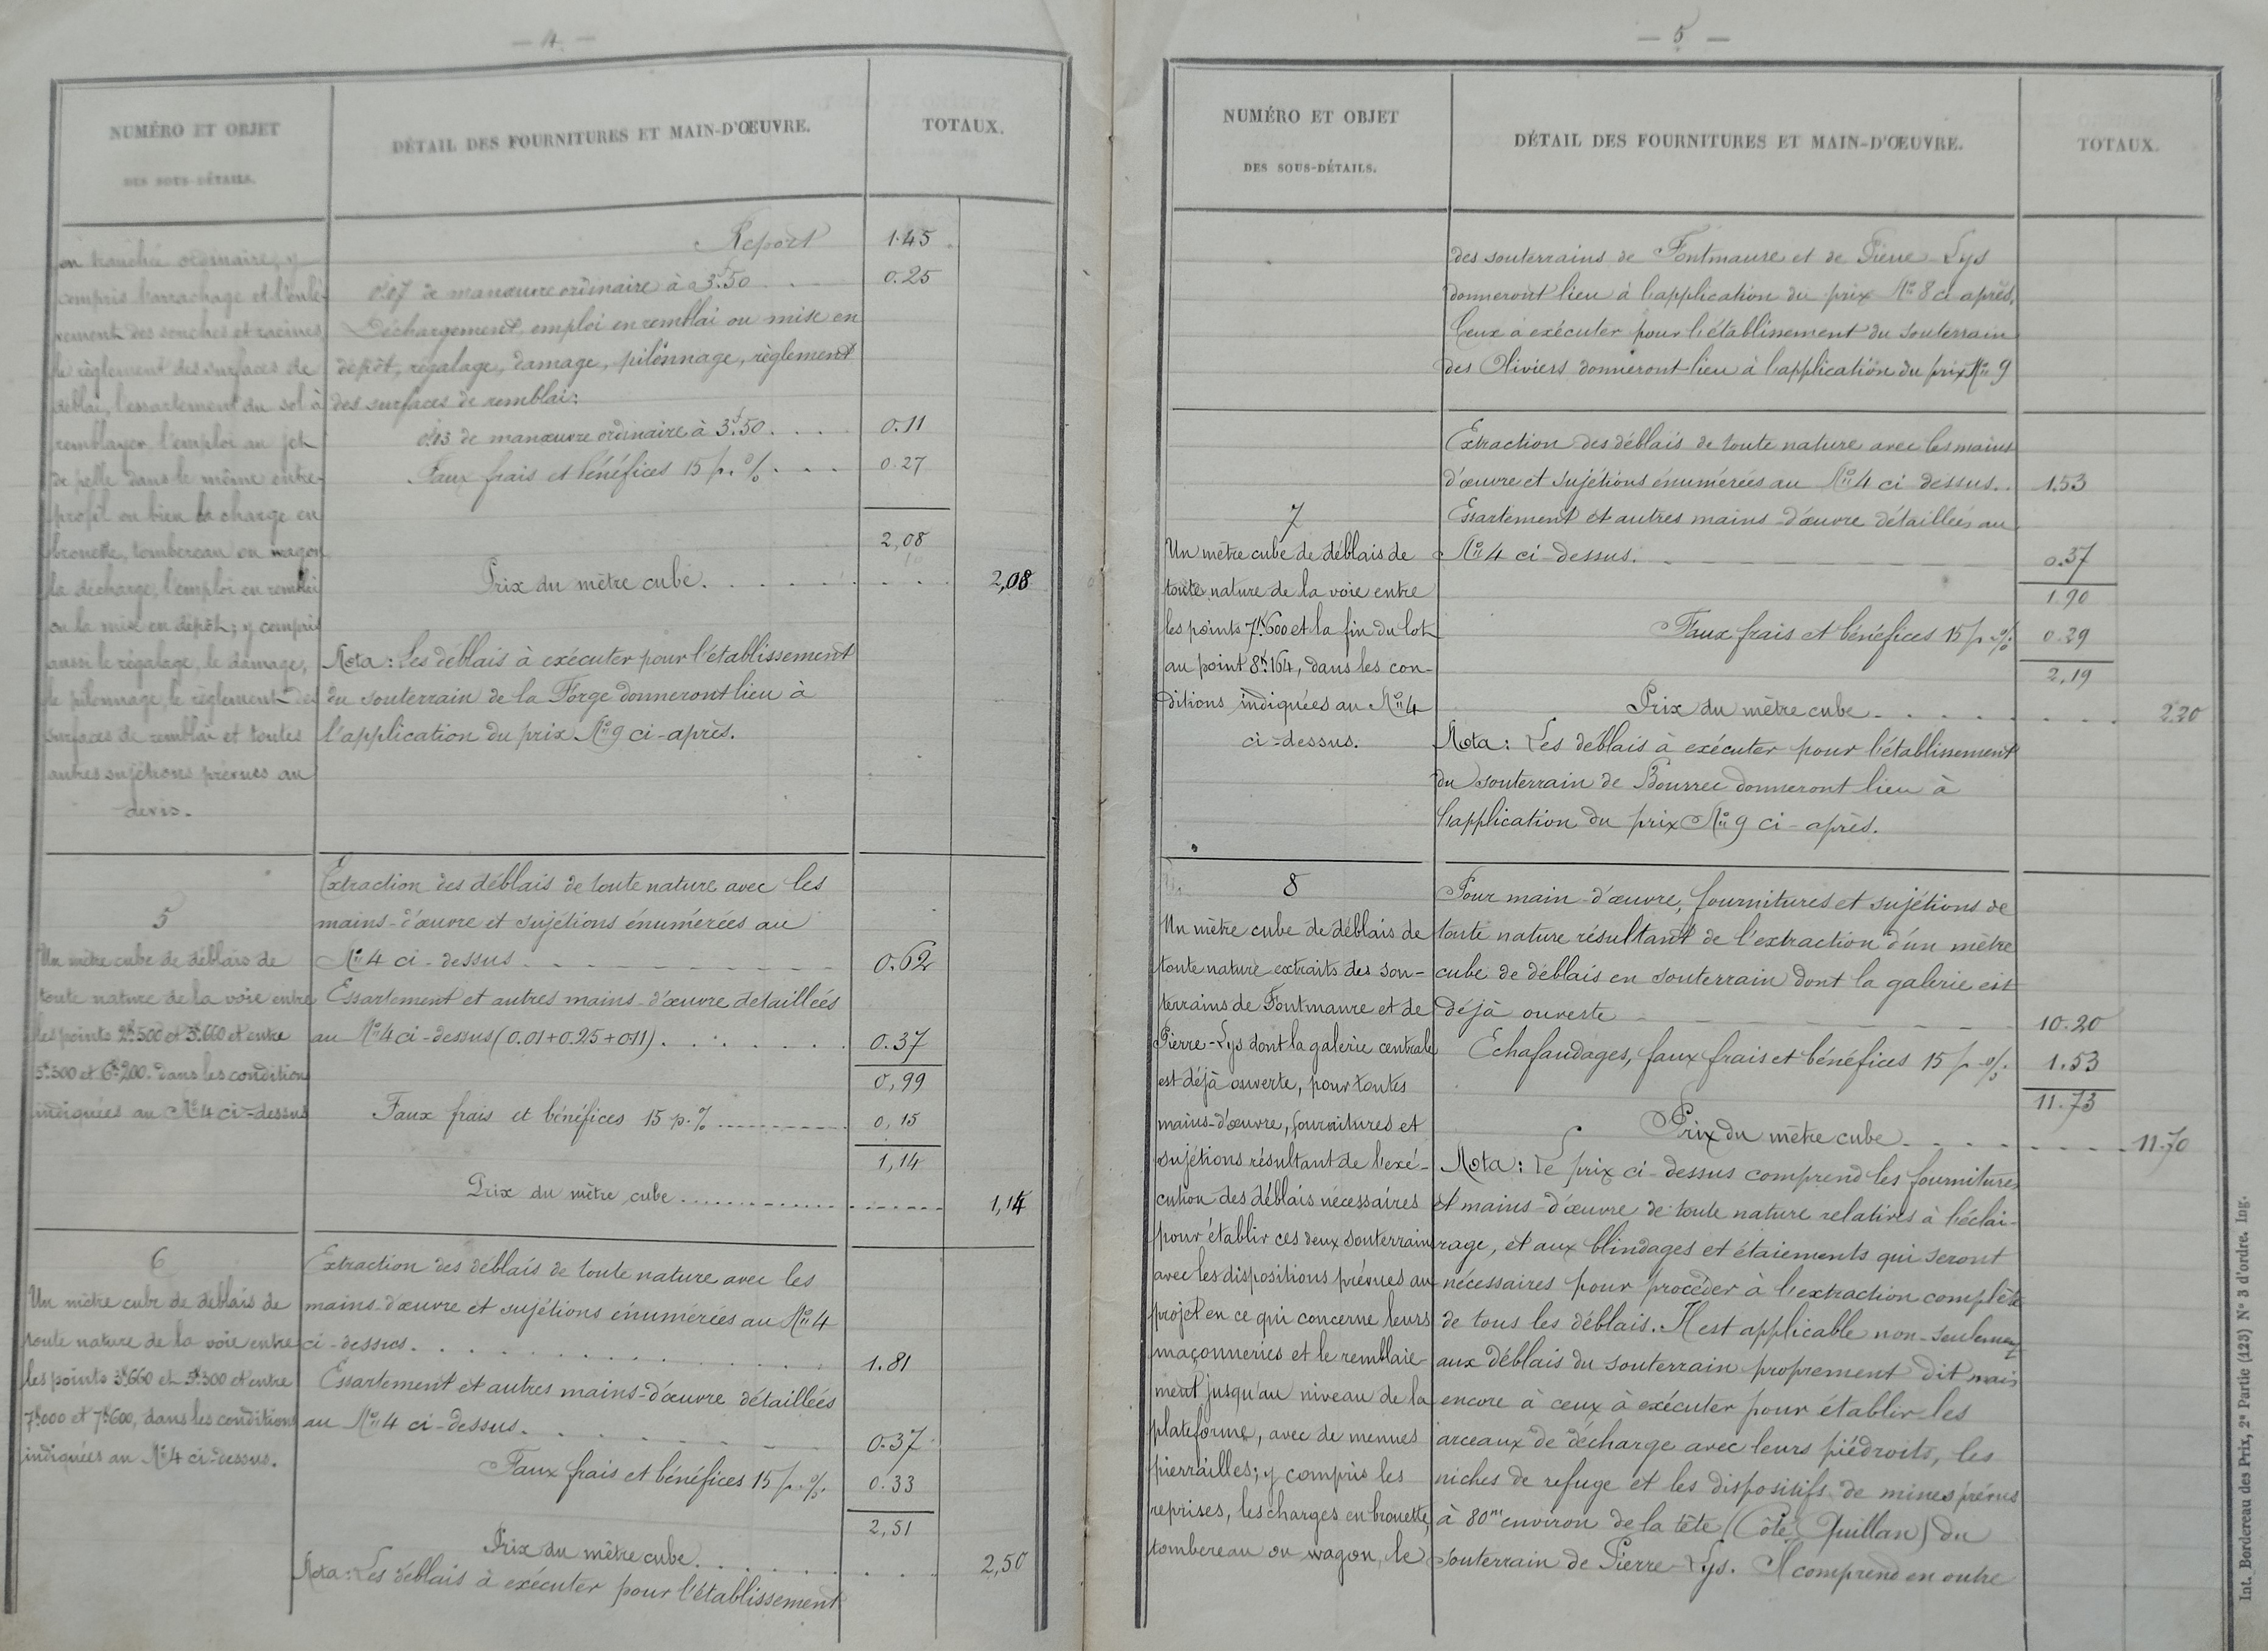 — 4 —
NUMÉRO ET OBJET
DES SOUS-DÉTAILS.
DÉTAIL DES FOURNITURES ET MAIN-D'ŒUVRE.
TOTAUX.
en tranchée ordinaire, y
compris l'arrachage et l'enlè-
vement des souches et racines,
le règlement des surfaces de
déblai, l'essartement du sol à
remblayer l'emploi au jet
de pelle dans le même entre-
profil ou bien la charge en
brouette, tombereau ou wagon
la décharge, l'emploi en remblai
ou la mise en dépôt; y compris
aussi le régalage, le damage,
le pilonnage, le règlement des
surfaces de remblai et toutes
autres sujétions prévues au
devis.
Report 1.45
0j.07 de manœuvre ordinaire à 3f.50 0.25
Déchargement, emploi en remblai ou mise en
dépôt, régalage, damage, pilonnage, règlement
des surfaces de remblai:
0j.03 de manœuvre ordinaire à 3f.50 . . . . 0.11
Faux frais et bénéfices 15 p. % . . . . 0.27
2,08
Prix du mètre cube. . . . . . . . . 2,08
Nota: Les déblais à exécuter pour l'établissement
du souterrain de la Forge donneront lieu à
l'application du prix No 9 ci-après.
5
Un mètre cube de déblais de
toute nature de la voie entre
les points 2k.500 et 3k.660 et entre
5k.300 et 6k.200. dans les conditions
indiquées au No 4 ci-dessus
Extraction des déblais de toute nature avec les
mains-d'œuvre et sujétions énumérées au
No 4 ci-dessus 0.62
Essartement et autres mains-d'œuvre détaillées
au No 4 ci-dessus (0.01+0.25+0.11). . . . . . . 0.37
0,99
Faux frais et bénéfices 15 p. % ........... 0,15
1,14
Prix du mètre cube ................... 1,14
6
Un mètre cube de déblais de
toute nature de la voie entre
les points 3k.660 et 5k.300 et entre
7k.000 et 7k.600, dans les conditions
indiquées au No 4 ci-dessus.
Extraction des déblais de toute nature avec les
mains-d'œuvre et sujétions énumérées au No 4
ci-dessus. . . . . . . . . . . 1.81
Essartement et autres mains-d'œuvre détaillées
au No 4 ci-dessus. . . . . 0.37
Faux frais et bénéfices 15 p. %. 0.33
2,51
Prix du mètre cube. . . . . . . . . . 2,50
Nota: Les déblais à exécuter pour l'établissement
— 5 —
NUMÉRO ET OBJET
DES SOUS-DÉTAILS.
DÉTAIL DES FOURNITURES ET MAIN-D'ŒUVRE.
TOTAUX.
des souterrains de Fontmaure et de Pierre-Lys
donneront lieu à l'application du prix No 8 ci après.
Ceux à exécuter pour l'établissement du souterrain
des Oliviers donneront lieu à l'application du prix No 9
7
Un mètre cube de déblais de
toute nature de la voie entre
les points 7k.600 et la fin du lot
au point 8k.164, dans les con-
ditions indiquées au No 4
ci-dessus.
Extraction des déblais de toute nature avec les mains
d'œuvre et sujétions énumérées au No 4 ci dessus. . 1.53
Essartement et autres mains d'œuvre détaillées au
No 4 ci-dessus. 0.37
1.90
Faux frais et bénéfices 15 p. % 0.29
2,19
Prix du mètre cube . . . . . . . . 2.20
Nota: Les déblais à exécuter pour l'établissement
du souterrain de Bourrec donneront lieu à
l'application du prix No 9 ci-après.
8
Un mètre cube de déblais de
toute nature extraits des sou-
terrains de Fontmaure et de
Pierre-Lys dont la galerie centrale
est déjà ouverte, pour toutes
mains-d'œuvre, fournitures et
sujétions résultant de l'exé-
cution des déblais nécessaires
pour établir ces deux souterrains
avec les dispositions prévues au
projet en ce qui concerne leurs
maçonneries et le remblaie-
ment jusqu'au niveau de la
plateforme, avec de menues
pierrailles; y compris les
reprises, les charges en brouette,
tombereau ou wagon, le
Pour main-d'œuvre, fournitures et sujétions de
toute nature résultant de l'extraction d'un mètre
cube de déblais en souterrain dont la galerie est
déjà ouverte 10.20
Echafaudages, faux frais et bénéfices 15 p. %. 1.53
11.73
Prix du mètre cube . . . . . . . . 11.70
Nota: Le prix ci-dessus comprend les fournitures
et mains-d'œuvre de toute nature relatives à l'éclai-
rage, et aux blindages et étaiements qui seront
nécessaires pour procéder à l'extraction complète
de tous les déblais. Il est applicable non-seulement
aux déblais du souterrain proprement dit mais
encore à ceux à exécuter pour établir les
arceaux de décharge avec leurs piédroits, les
niches de refuge et les dispositifs de mines prévus
à 80m environ de la tête (Côté Quillan) du
souterrain de Pierre-Lys. Il comprend en outre
Int. Bordereau des Prix, 2e Partie (123) No 3 d'ordre. Ing.